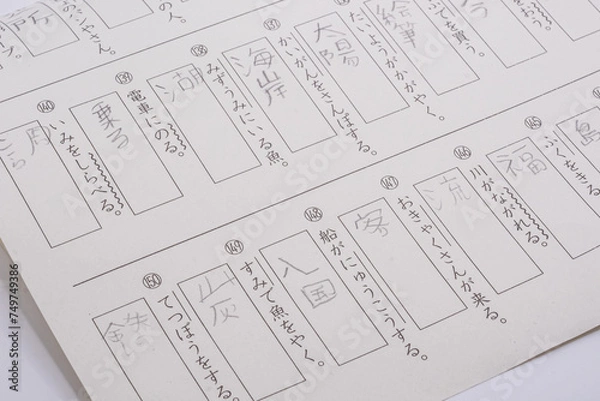 ふでを買う。
絵筆
たいようがかがやく。
太陽
かいがんをさんぽする。
137
海岸
みずうみにいる魚。
138
湖
電車にのる。
139
乗る
いみをしらべる。
140
島
ふくをきる。
145
福
川がながれる。
146
流
おきゃくさんが来る。
147
客
船がにゅうこうする。
148
入国
すみで魚をやく。
149
炭
てつぼうをする。
150
鉄
Adobe Stock | #749749386